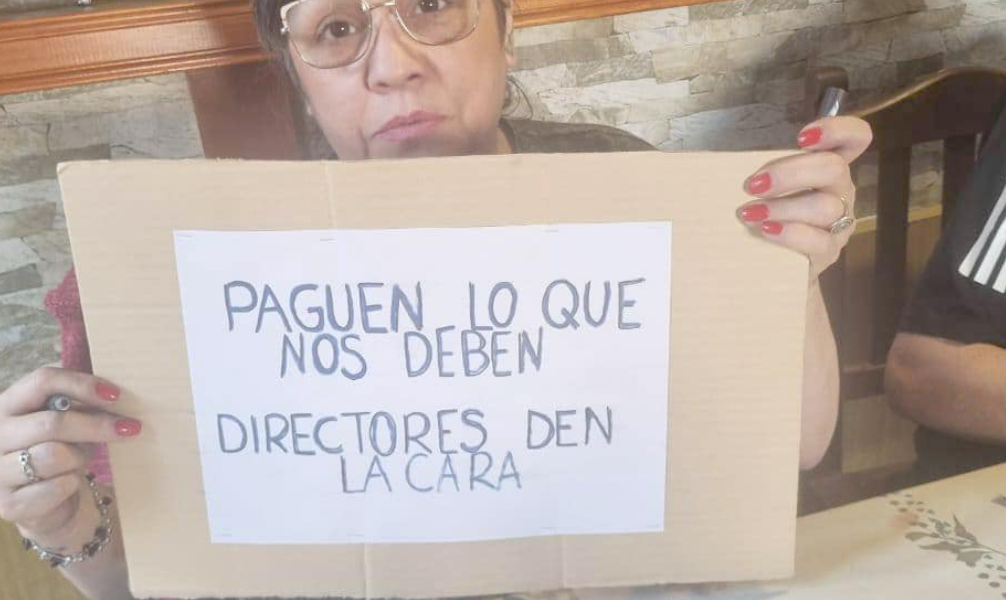 PAGUEN LO QUE
NOS DEBEN
DIRECTORES DEN
LA CARA